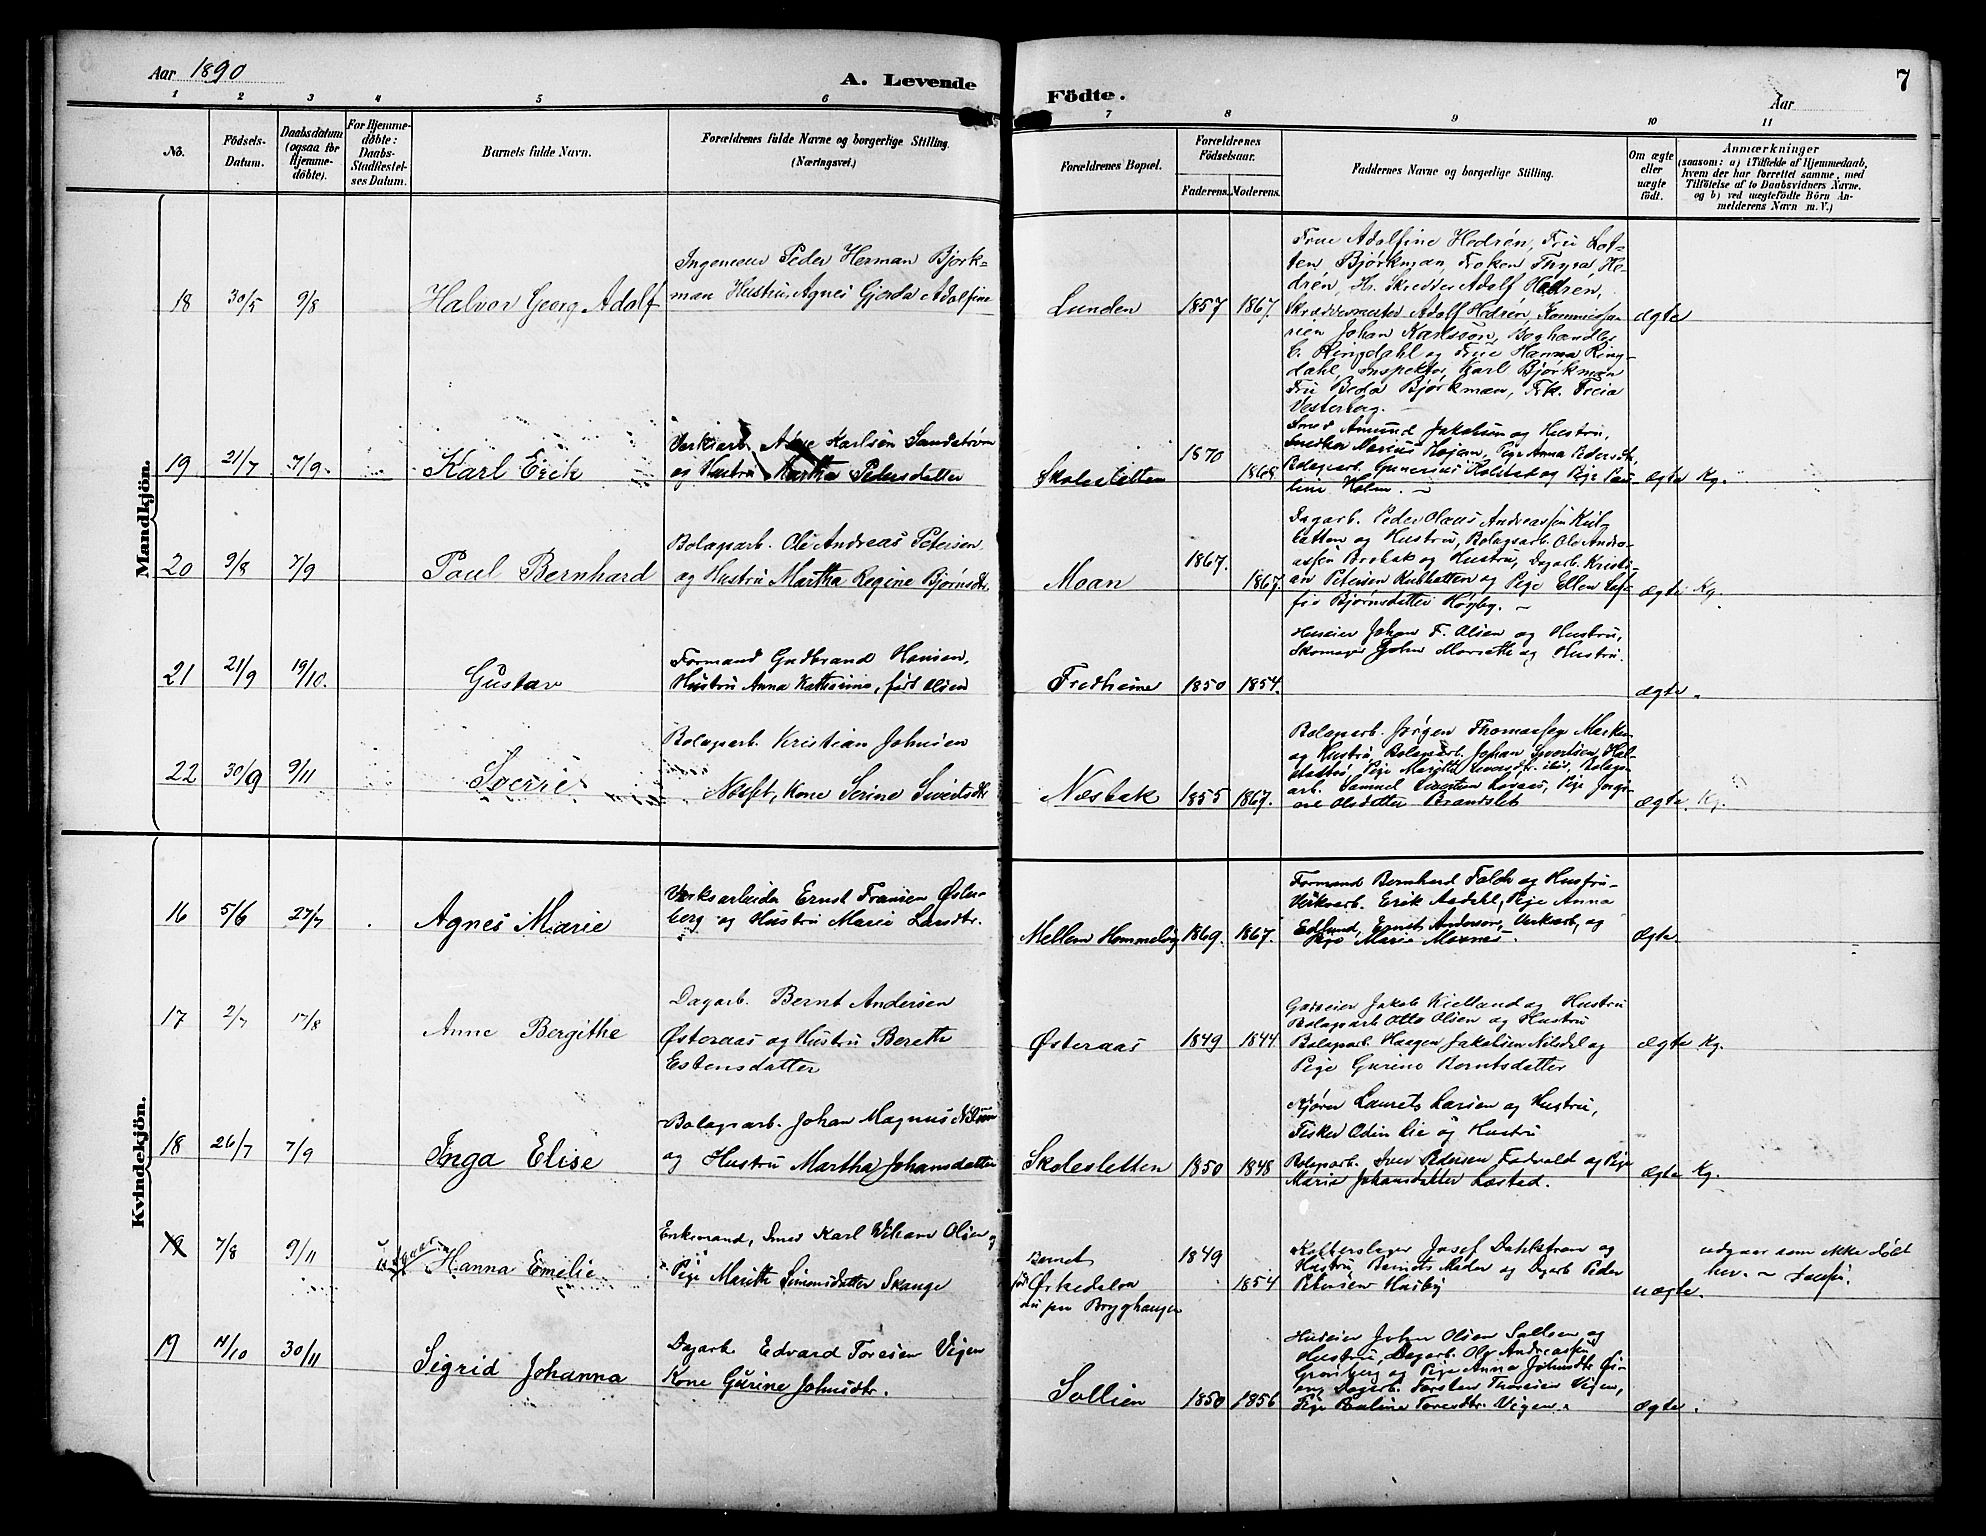 Aar 1890
A. Levende
Födte.
Aar
7
1 2 3 4 5 6 7 8 9 10 11
No.
Födsels-
Datum.
Daabsdatum
(ogsaa for
Hjemme-
döbte).
For Hjemme-
döbte:
Daabs-
Stadfæstel-
ses Datum.
Barnets fulde Navn.
Forældrenes fulde Navne og borgerlige Stilling.
(Næringsvei.)
Forældrenes Bopæl.
Forældrenes
Födselsaar.
Faderens. Moderens.
Faddernes Navne og borgerlige Stilling.
Om ægte
eller
uægte
födt.
Anmærkninger
(saasom: a) i Tilfælde af Hjemmedaab,
hvem der har forrettet samme, med
Tilföielse af to Daabsvidners Navne.
og b) ved uægtefödte Börn An-
melderens Navn m. V.)
Mandkjön.
18 30/5 9/8 Halvor Georg Adolf
Ingeniør Peder Herman Bjørk-
man Hustru Agnes Gjerda Adolfine
Lunden 1857 1867.
Frue Adolfine Hedrén, Fru Lot-
ten Bjørkman, Frøken Thyra He-
drén, Hr. Skredder Adolf Hedrén,
Skreddermester Adolf Hedrén,
Johan Karlsson, Boghandler
C. Ringdahl og Frue Hanna Ring-
dahl, Inspektør Karl Bjørkman
Fru Beda Bjørkman, Frk. Freia
Vesterberg.
ægte
19 21/7 7/9. Karl Erik
Verksarb. Karlsen Sandstrøm
og Hustru Martha Pedersdatter
Skolesletten 1870 1868
Smed Amund Jakobsen og Hustru,
Snedker Marius Hojem, Pige Anna Pedersdtr,
Bolagsarb. Gunerius Holstad og Pige Pau-
line Holm.
ægte Kg.
20 9/8 7/9 Paul Bernhard
Bolagsarb. Ole Andreas Petersen
og Hustru Martha Regine Bjørnsdtr.
Moan 1867. 1867.
Dagarb. Peder Olaus Andreassen Kub-
hatten og Hustru, Bolagsarb. Ole Andre-
assen Brobak og Hustru, Dagarb. Kristi-
an Petersen Kubhatten og Pige Ellen
Bjørnsdatter Høyby.
ægte Kg.
21 21/9 19/10. Gustav
Formand Gudbrand Hansen,
Hustru Anna Kathrine, født Olsen
Fredheim 1850 1854.
Huseier Johan F. Olsen og Hustru,
Skomager John Morseth og Hustru.
ægte.
22 30/9 9/11 Sverre
Bolagsarb. Kristian Johnsen
Kone Serine Sivertsdtr
Næsbak 1855 1867.
Bolagsarb. Jørgen Thomassen
og Hustru, Bolagsarb. Johan Sivertsen
Pige Bolags-
arb. Samuel Pige
Olsdatter
ægte. Kg.
Kvindekjön.
16 5/6 27/7 Agnes Marie
Verksarbeider Ernst Fransen Øster-
berg og Hustru Marie Larsdtr.
Mellem Hommelvig 1869. 1867.
Formand Bernhard Falch og Hustru
Verksarb. Erik Aadahl, Pige Anna
Edlund, Ernst Anderson, Verksarb, og
Pige Marie Moxnes.
Ægte.
17 2/7 17/8 Anne Bergithe
Dagarb. Bernt Andersen
Østeraas og Hustru Bereth
Estensdatter
Østeraas 1849 1844.
Gaardeier Jakob Kielland og Hustru
Bolagsarb Otto Olsen og Hustru
Bolagsarb. Haagen Jakobsen og
Pige Gurine Berntsdatter
ægte Kg.
18 26/7 7/9 Inga Elise
Bolagsarb. Johan Magnus Nilsen
og Hustru Martha Johansdatter
Skolesletten 1850 1848
Kjører Laurets Larsen og Hustru,
Fisker Odin Lie og Hustru
Bolagsarb. Iver Pedersen og Pige
Maria Johansdatter
ægte Kg.
19 7/8 9/11 udgaar Hanna Emelie
Enkemand, Smed Karl Vilhelm Olsen og
Pige Marith Simonsdatter Skauge
Barnets
Ørkedalen
nu paa Bryghaugen 1849 1854
Kobberslager Josef Dahlstrøm og
Hustru, Barnets Moder og Dagarb. Peder
Petersen Husby
uægte.
udgaar som ikke døbt
her.
19 11/10 30/11 Sigrid Johanna
Dagarb. Edvard Toresen Vigen
Kone Gurine Johnsdtr.
Sollien 1850 1856
Huseier John Olsen Sollien og
Hustru, Dagarb. Ole Andreassen
Grønberg og Pige Anna Johnsdtr
Dagarb. Torsten Thoresen Vigen,
Pige Pauline Toresdtr. Vigen.
ægte.